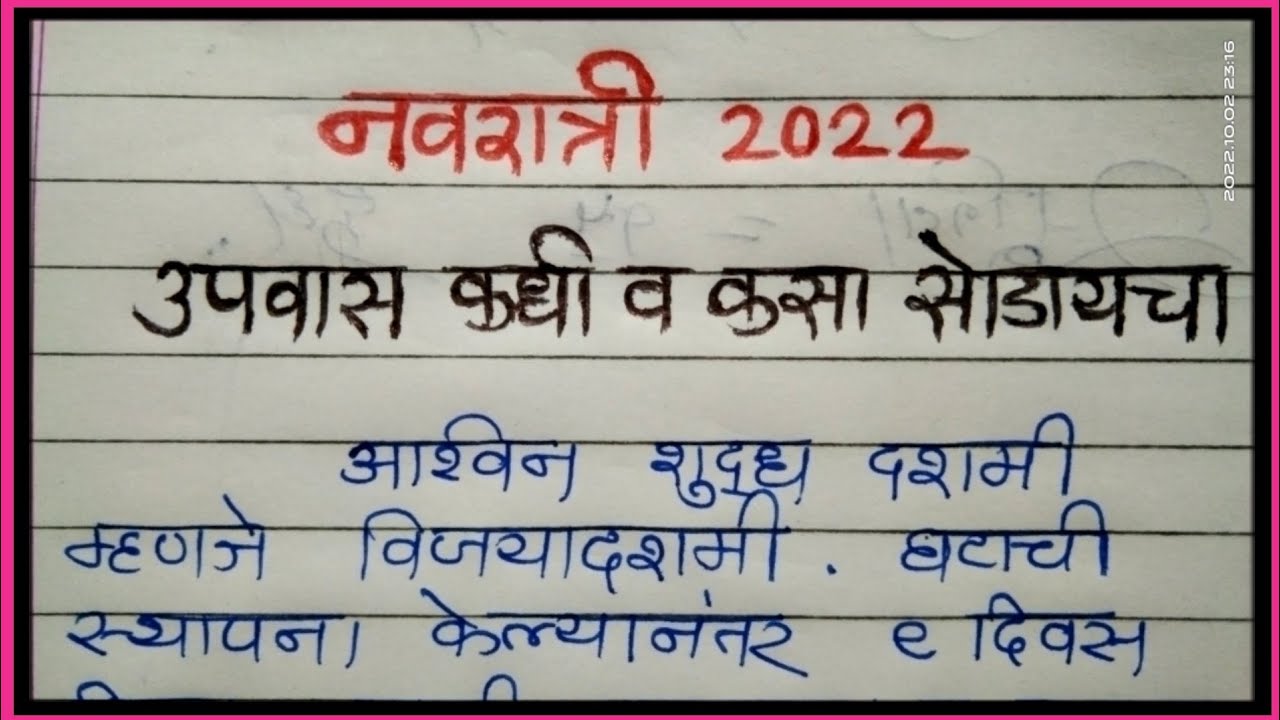 नवरात्री 2022
उपवास कधी व कसा सोडायचा
आश्विन शुद्ध दशमी
म्हणजे विजयादशमी. घटाची
स्थापना केल्यानंतर ९ दिवस
2022.10.02 23:16